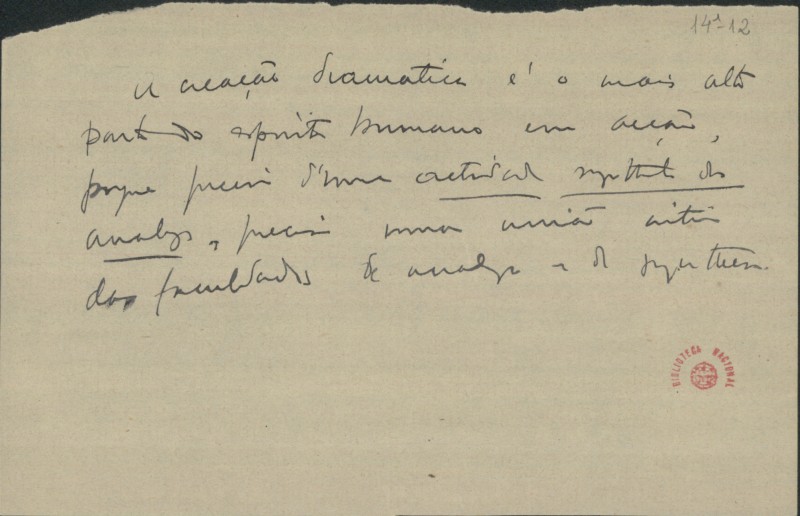 14¹-12
A creação dramatica é o mais alto
ponto do espirito humano em acção,
porque precisa d'uma actividade synthetisadora da
analyse, precisa uma união intima
das faculdades de analyse e de synthese.
BIBLIOTECA NACIONAL